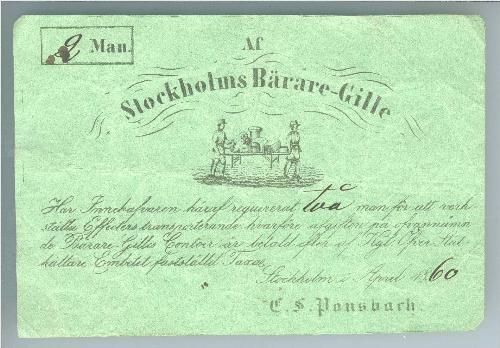 2 Man.
Af
Stockholms Bärare-Gille
Har Innehafvaren häraf requirerat två man för att verk-
ställa Effecters transporterande hvarföre afgiften på ofvannämn-
de Bärare-Gilles Contoir är betald efter af Kgl. Öfver Ståt-
hållare Embetet fastställd Taxa.
Stockholm i April 1860
C. S. Ponsbach.